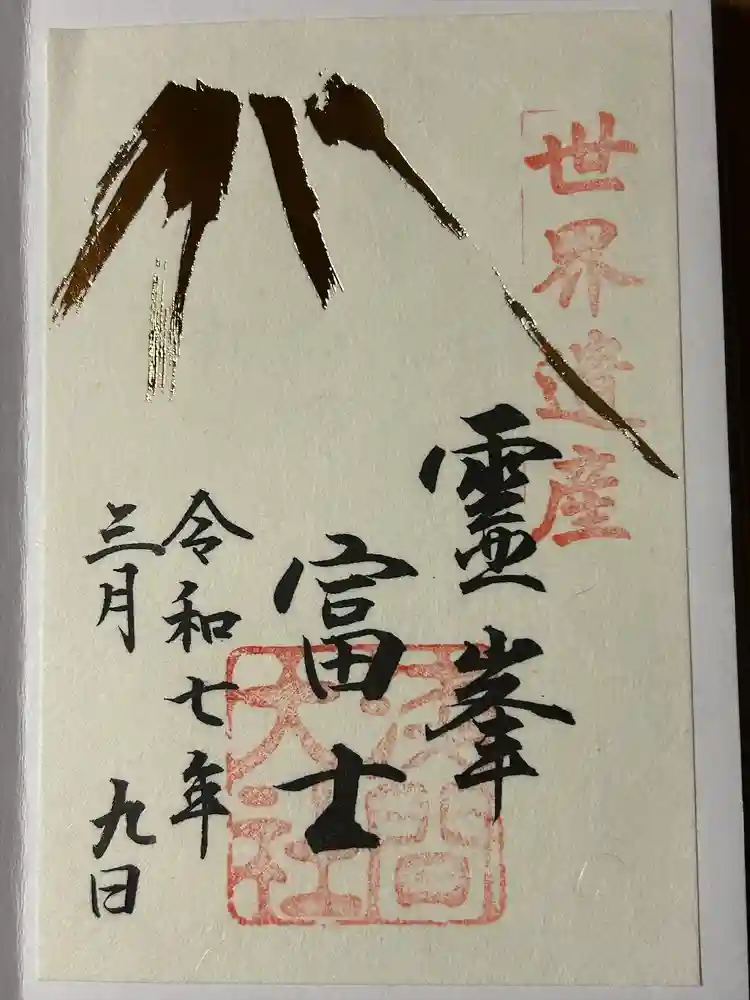 世界遺産
霊峯
富士
令和七年
三月 九日
浅間
大社